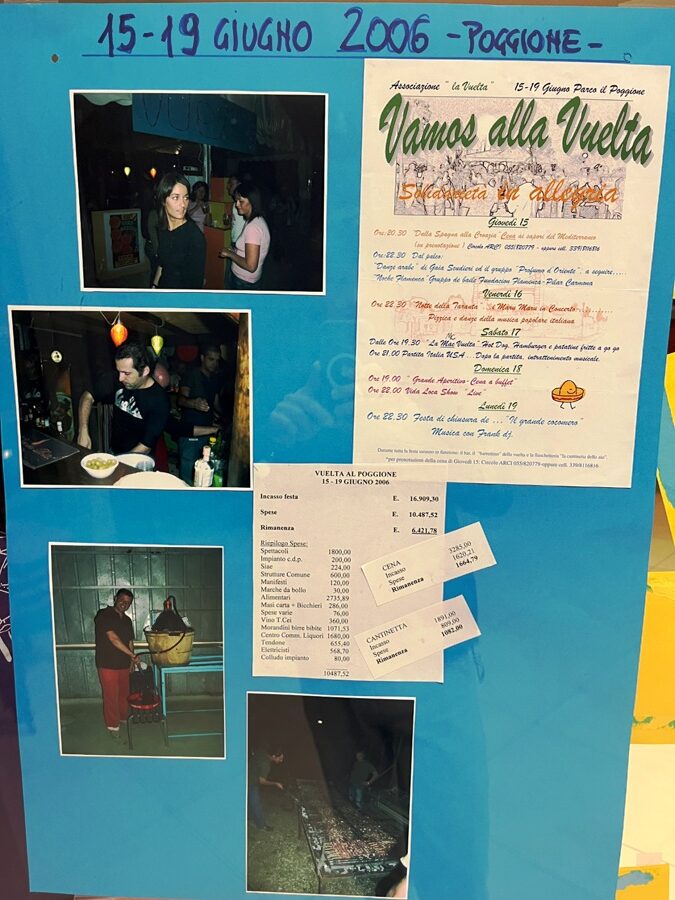 15-19 GIUGNO 2006 - POGGIONE -
Associazione "la Vuelta" 15-19 Giugno Parco il Poggione
Vamos alla Vuelta
Solidarietà in allegria
Giovedì 15
Ore 20,30 "Dalla Spagna alla Croazia Cena ai sapori del Mediterraneo
(su prenotazione) Circolo ARCI 055/820779 - oppure cell. 339/8116816
Ore 22.30 Dal palco:
"Danze arabe" di Gaia Scuderi ed il gruppo "Profumo d'Oriente", a seguire....
"Noche Flamenca" Gruppo de baile Fundacion Flamenta - Pilar Carmona
Venerdì 16
Ore 22,30 "Notte della Taranta" i Maru Maru in Concerto...
Pizzica e danze della musica popolare italiana
Sabato 17
Dalle Ore 19.30 "La Mac Vuelta" Hot Dog, Hamburger e patatine fritte a go go
Ore 21.00 Partita Italia USA... Dopo la partita, intrattenimento musicale.
Domenica 18
Ore 19.00 "Grande Aperitivo-Cena a buffet"
Ore 22.00 Vida Loca Show "Live"
Lunedì 19
Ore 22,30 Festa di chiusura de ... "Il grande cocomero"
Musica con Frank dj.
Durante tutta la festa saranno in funzione: il bar, il "barrettino" della vuelta e la fiaschetteria "la cantinetta dello zio".
*per prenotazioni della cena di Giovedì 15: Circolo ARCI 055/820779-oppure cell. 339/8116816
VUELTA AL POGGIONE
15 - 19 GIUGNO 2006
Incasso festa E. 16.909,30
Spese E. 10.487,52
Rimanenza E. 6.421,78
Riepilogo Spese:
Spettacoli 1800,00
Impianto c.d.p. 200,00
Siae 224,00
Strutture Comune 600,00
Manifesti 120,00
Marche da bollo 30,00
Alimentari 2735,89
Masi carta + Bicchieri 286,00
Spese varie 76,00
Vino T.Cei 360,00
Morandini birre bibite 1071,53
Centro Comm. Liquori 1680,00
Tendone 655,40
Elettricisti 568,70
Colludo impianto 80,00
10487,52
CENA
Incasso 3285,00
Spese 1620,21
Rimanenza 1664,79
CANTINETTA
Incasso 1891,00
Spese 809,00
Rimanenza 1082,00